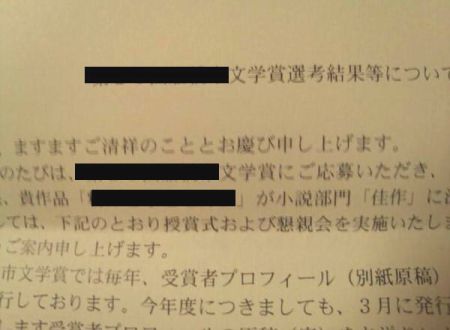 文学賞選考結果等につい
、ますますご清祥のこととお慶び申し上げます。
のたびは、文学賞にご応募いただき、
、貴作品「」が小説部門「佳作」に
しては、下記のとおり授賞式および懇親会を実施いたしま
ご案内申し上げます。
市文学賞では毎年、受賞者プロフィール（別紙原稿）
行しております。今年度につきましても、３月に発行
します受賞者プロフィールの原稿